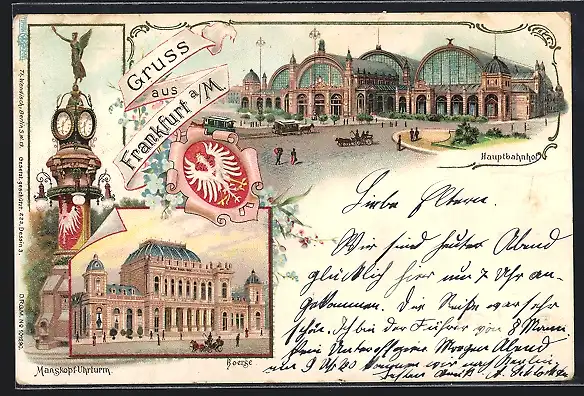 Gruss
aus
Frankfurt a/M
Hauptbahnhof
Manskopf-Uhrturm.
Boerse
Liebe Eltern.
Wir sind heute Abend
glücklich hier um 7 Uhr an-
gekommen. Die Reise war sehr
schön. Ich bin der Führer von 8 Mann
Morgen Abend
um 9 Uhr 40 kommen wir nach Berlin